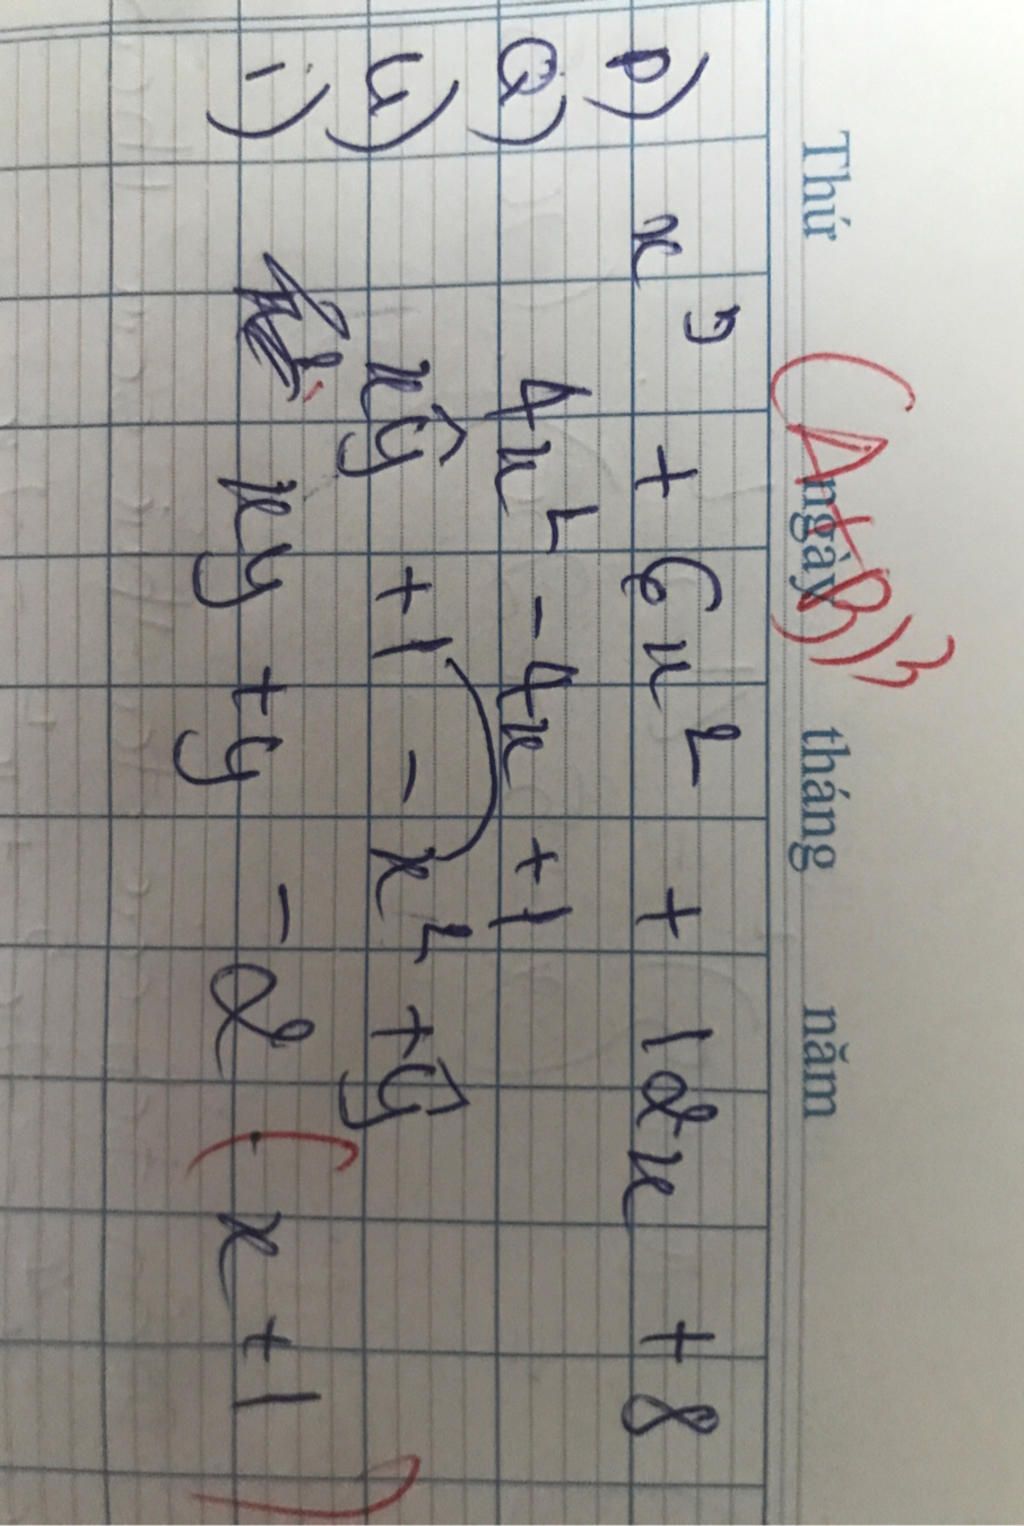 Thứ ngày tháng năm
(A+B)³
p) x³ + 6x² + 12x + 8
Q) 4x² - 4x + 1
u) xy + 1 - x² + y
i) xy + y - 2 (x + 1)